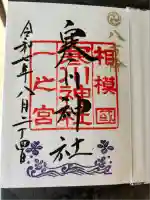 八方除
相模國
一之宮
寒川神社
寒川神社
令和七年八月二十四日